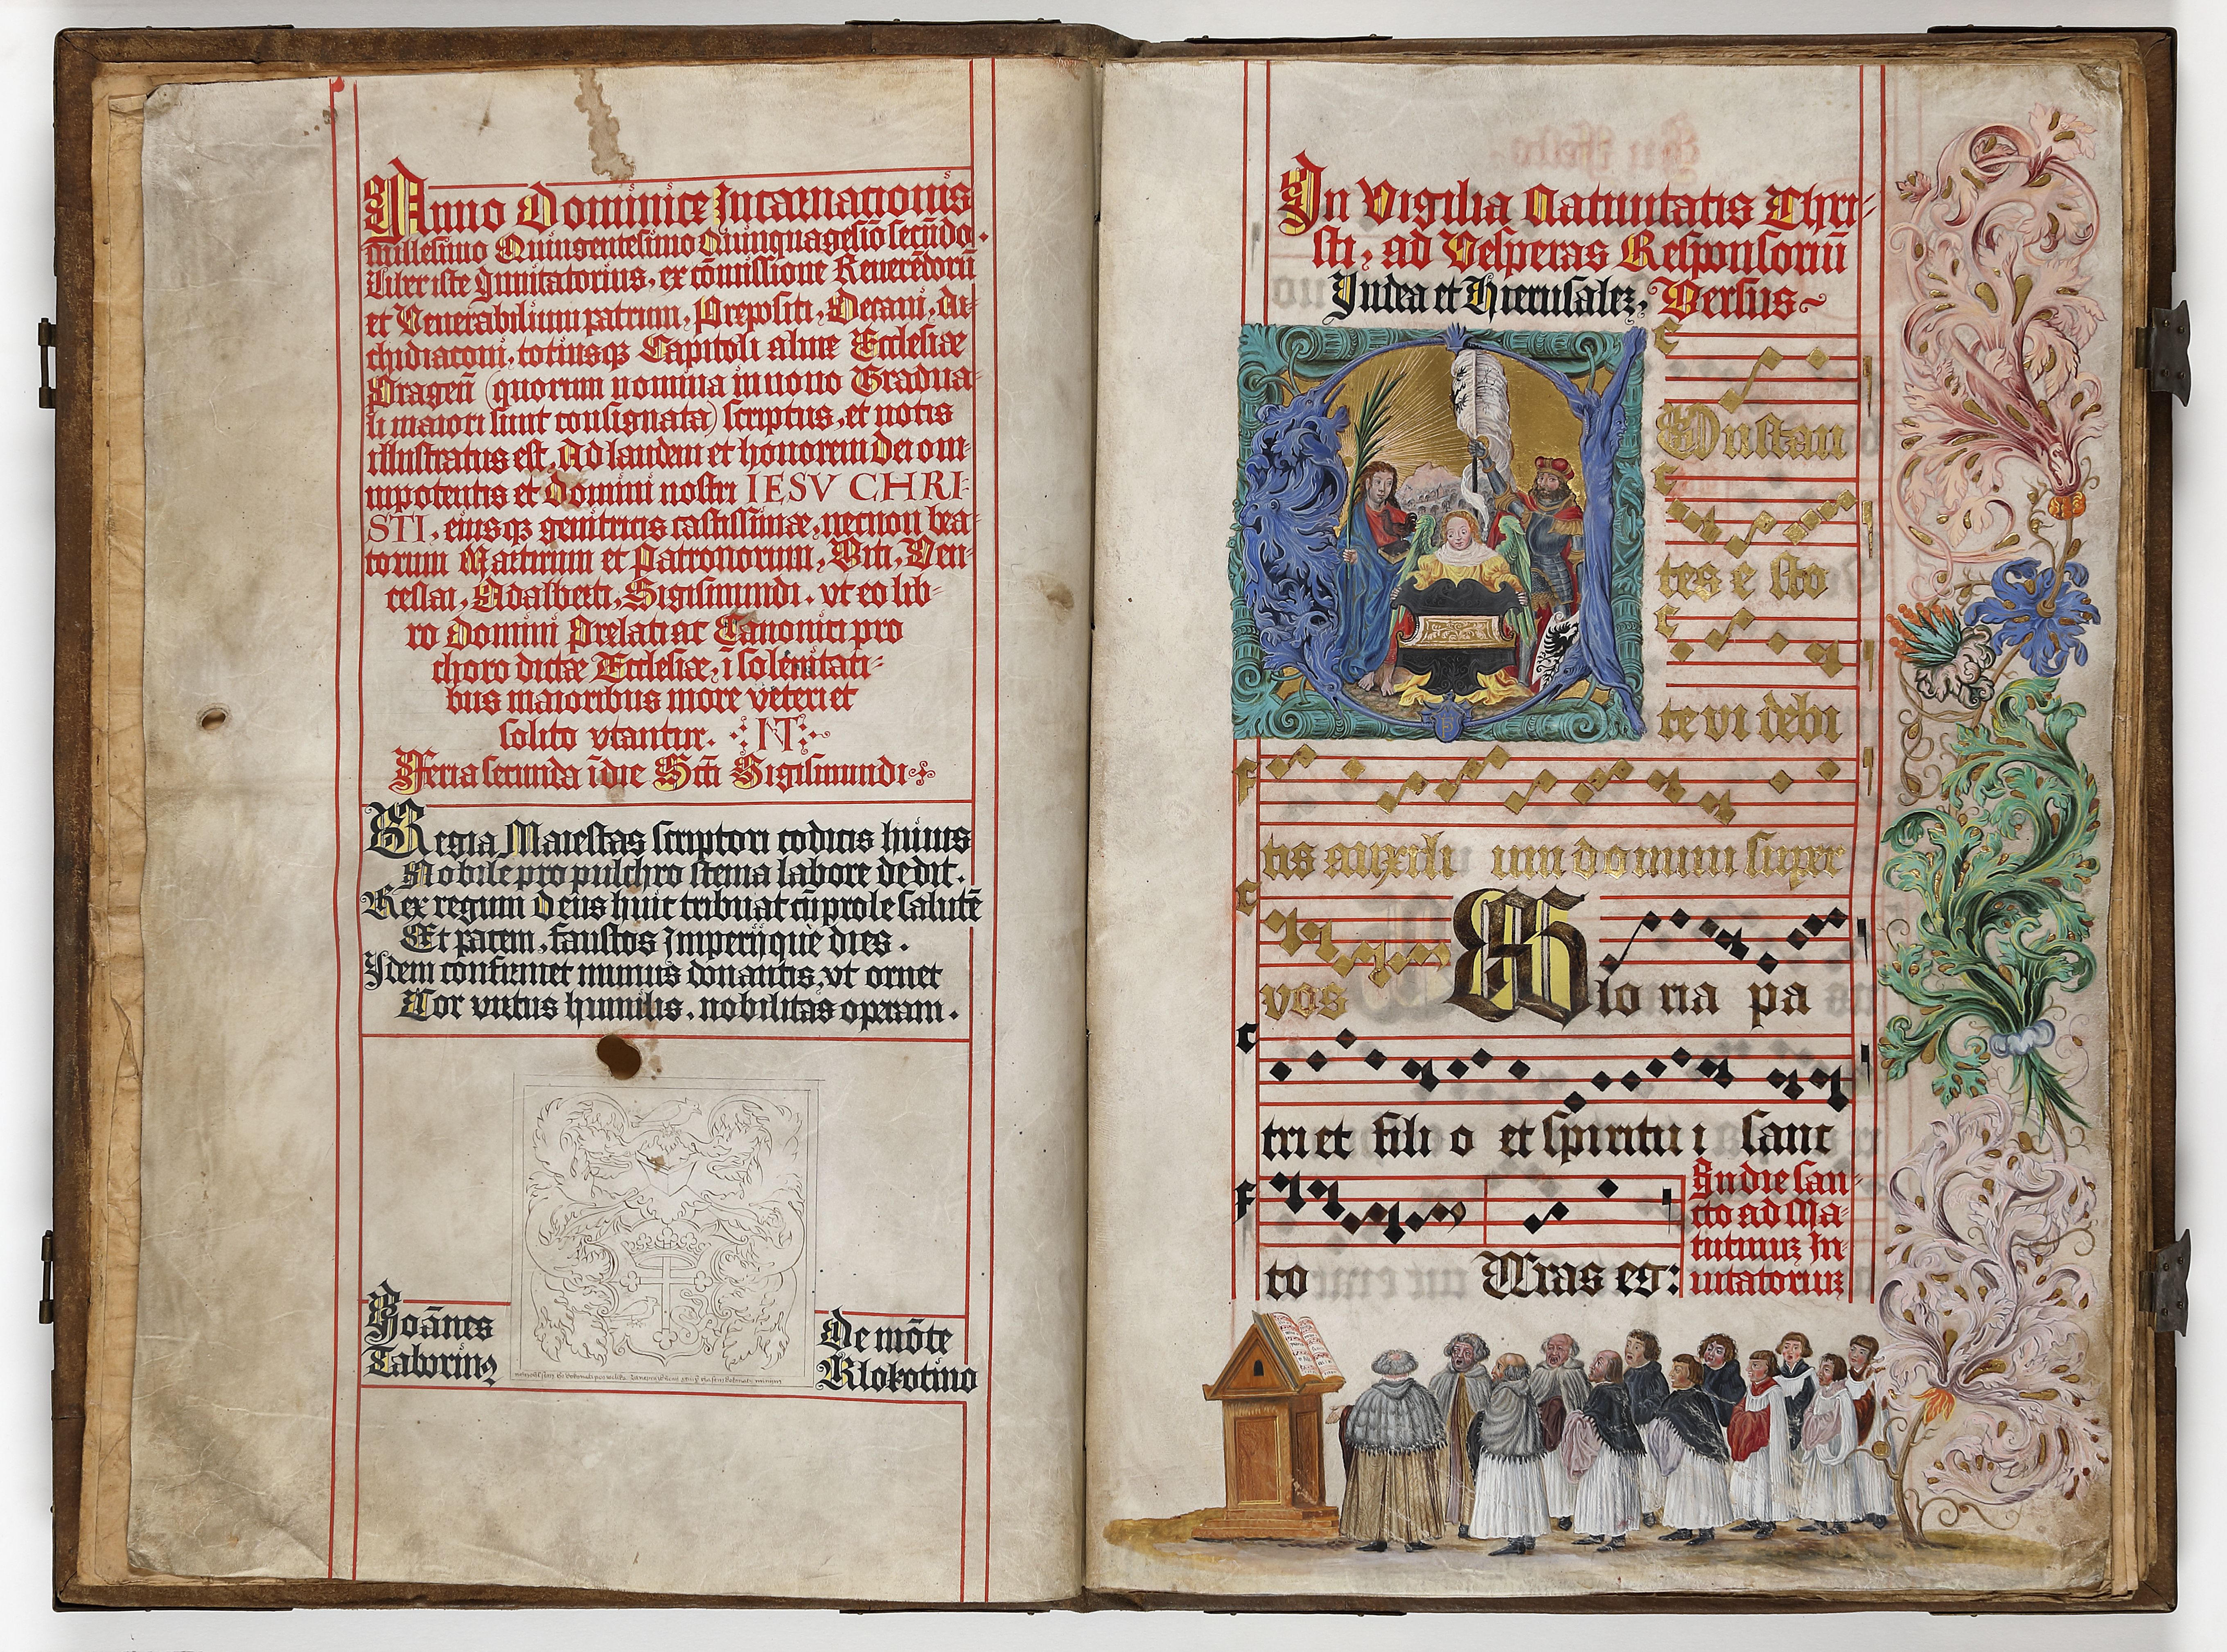 Anno Dominice Incarnationis
millesimo Quingentesimo Quinquagesio secūdo.
Liber iste Inuitatorius, ex cōmissione Reuerēdorū
et Venerabilium patrum, Prepositi, Decani, Ar-
chidiaconi, totiusqȝ Capitoli alme Ecclesiæ
Pragen̄ (quorum nomina in nouo Gradua-
li maiori sunt consignata) scriptus, et notis
illustratus est, Ad laudem et honorem dei om-
nipotentis et domini nostri IESV CHRI-
STI, eiusqȝ genitricis castissimæ, necnon bea-
torum Martirum et Patronorum, Viti, Ven-
ceslai, Adalberti, Sigismundi, vt eo lib-
ro domini Prelati ac Canonici pro
choro dictæ Ecclesiæ, ī solēnitati-
bus maioribus more veteri et
solito vtantur. NT
Feria secunda ī die Scti Sigismundi
Regia Maiestas scriptori codicis huius
Nobile pro pulchro stema labore dedit.
Rex regum deus huic tribuat cū prole salutē
Et pacem, faustos Imperijque dies.
Idem confirmet munus donantis, vt ornet
Cor virtus humilis, nobilitas operam.
Joānes
Taborinȝ
De mōte
Klokotino
In Vigilia Natiuitatis Chri-
sti, ad Vesperas Responsoriū
Iudea et Hierusalez, Versus
Onstan
tes e sto
te vi debi
tis auxili um domini super
vos Glo ria pa
tri et fili o et spiritu i sanc
to Cras er:
In die san-
cto ad Ma-
tutinuȝ In-
uitatoriuȝ